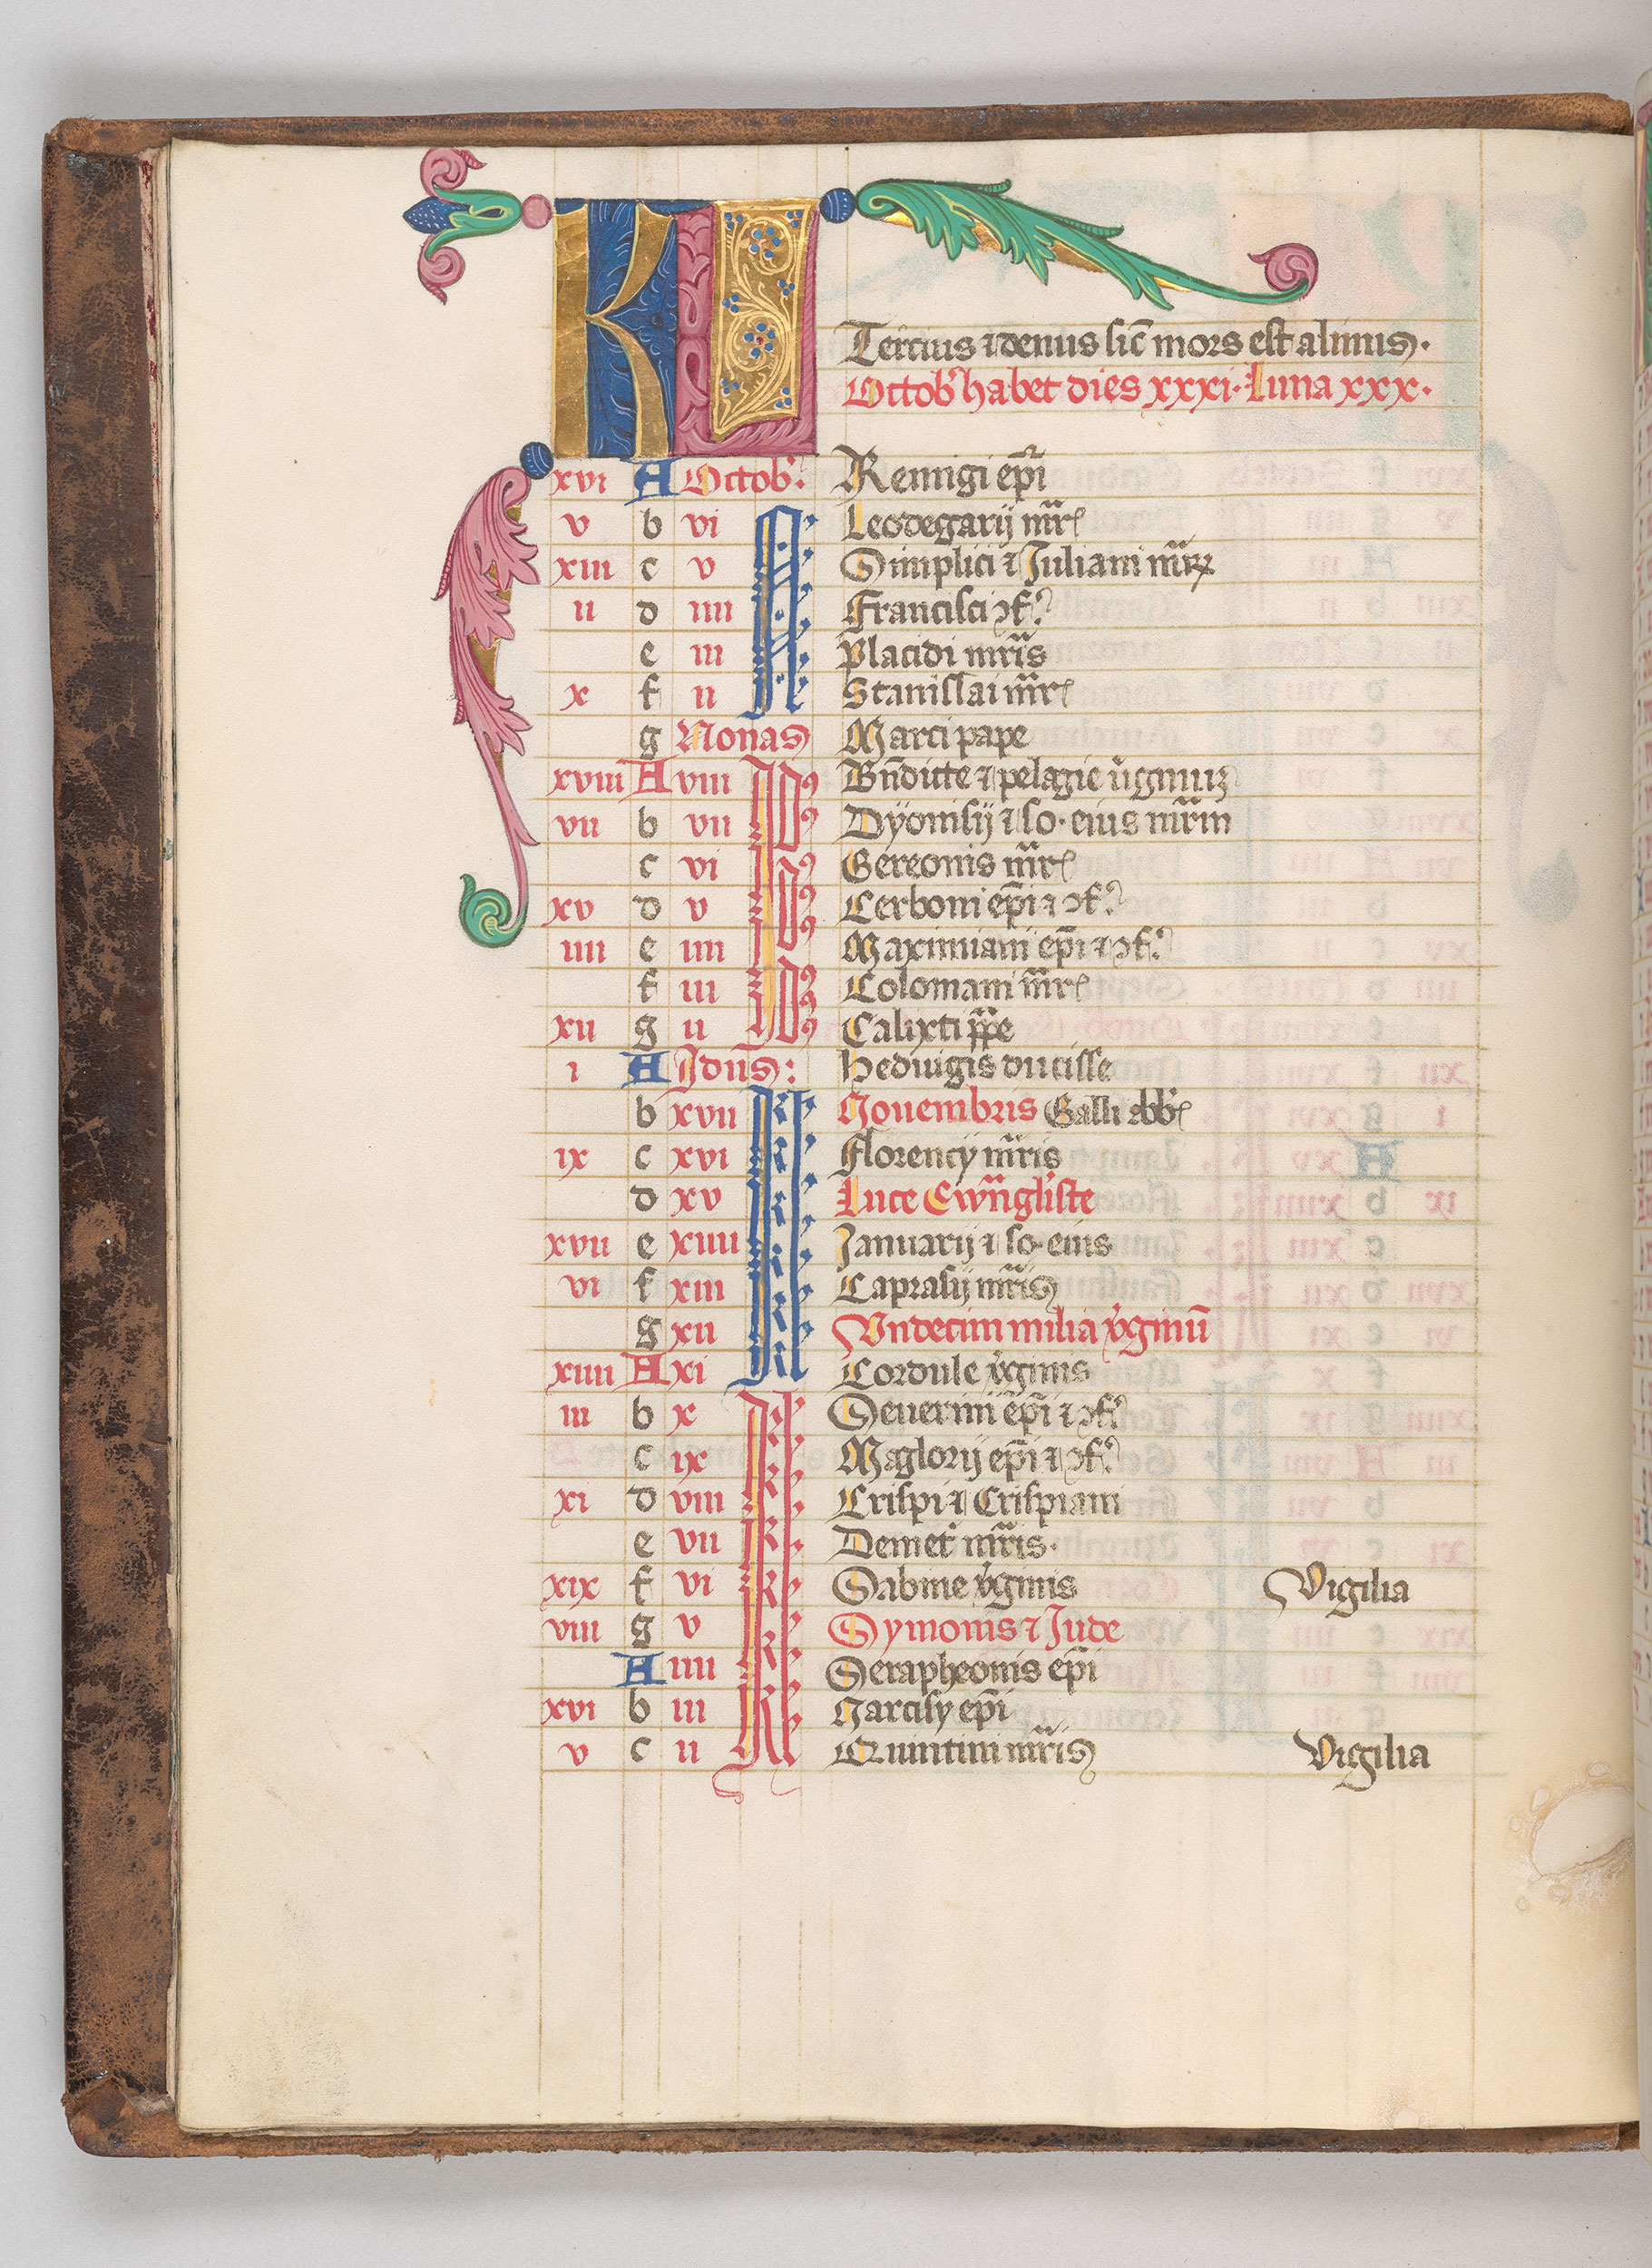 KL
Tercius ⁊ denus sic̄ mors est alimus.
Octob᷑ habet dies xxxi. Luna xxx.
xvi A Octob᷑. Remigi ep̄i
v b vi N Leodegarij mr̄
xiii c v Simplici ⁊ Juliani mr̄ꝝ
ii d iiii Francisci ꝯf.
e iii Placidi mr̄is
x f ii Stanislai mr̄
g Nonas Marci pape
xviii A viii Id9 Bn̄dicte ⁊ pelagie v̓ginuꝫ
vii b vii Dyonisij ⁊ so. eius mr̄m
c vi Id9 Gereonis mr̄
xv d v Cerboni ep̄i ⁊ ꝯf.
iiii e iiii Maximiani ep̄i ⁊ ꝯf.
f iii Id9 Colomani mr̄
xii g ii Calixti pp̄e
i A Idus: Hedwigis ducisse
b xvii Kl Nouembris Galli abb̄
ix c xvi Florencij mr̄is
d xv Kl Luce Ewāngliste
xvii e xiiii Januarij ⁊ so. eius
vi f xiii Kl Caprasij mr̄is
g xii Vndecim milia v̓ginū
xiiii A xi Kl Cordule v̓ginis
iii b x Kl Seuerini ep̄i ⁊ ꝯf.
c ix Maglorij ep̄i ⁊ ꝯf.
xi d viii Kl Crispi ⁊ Crispiani
e vii Kl Demet᷑ mr̄is.
xix f vi Kl Sabine v̓ginis Vigilia
viii g v Symonis ⁊ Jude
A iiii Kl Serapheonis ep̄i
xvi b iii Kl Narcisy ep̄i
v c ii Quintini mr̄is Vigilia